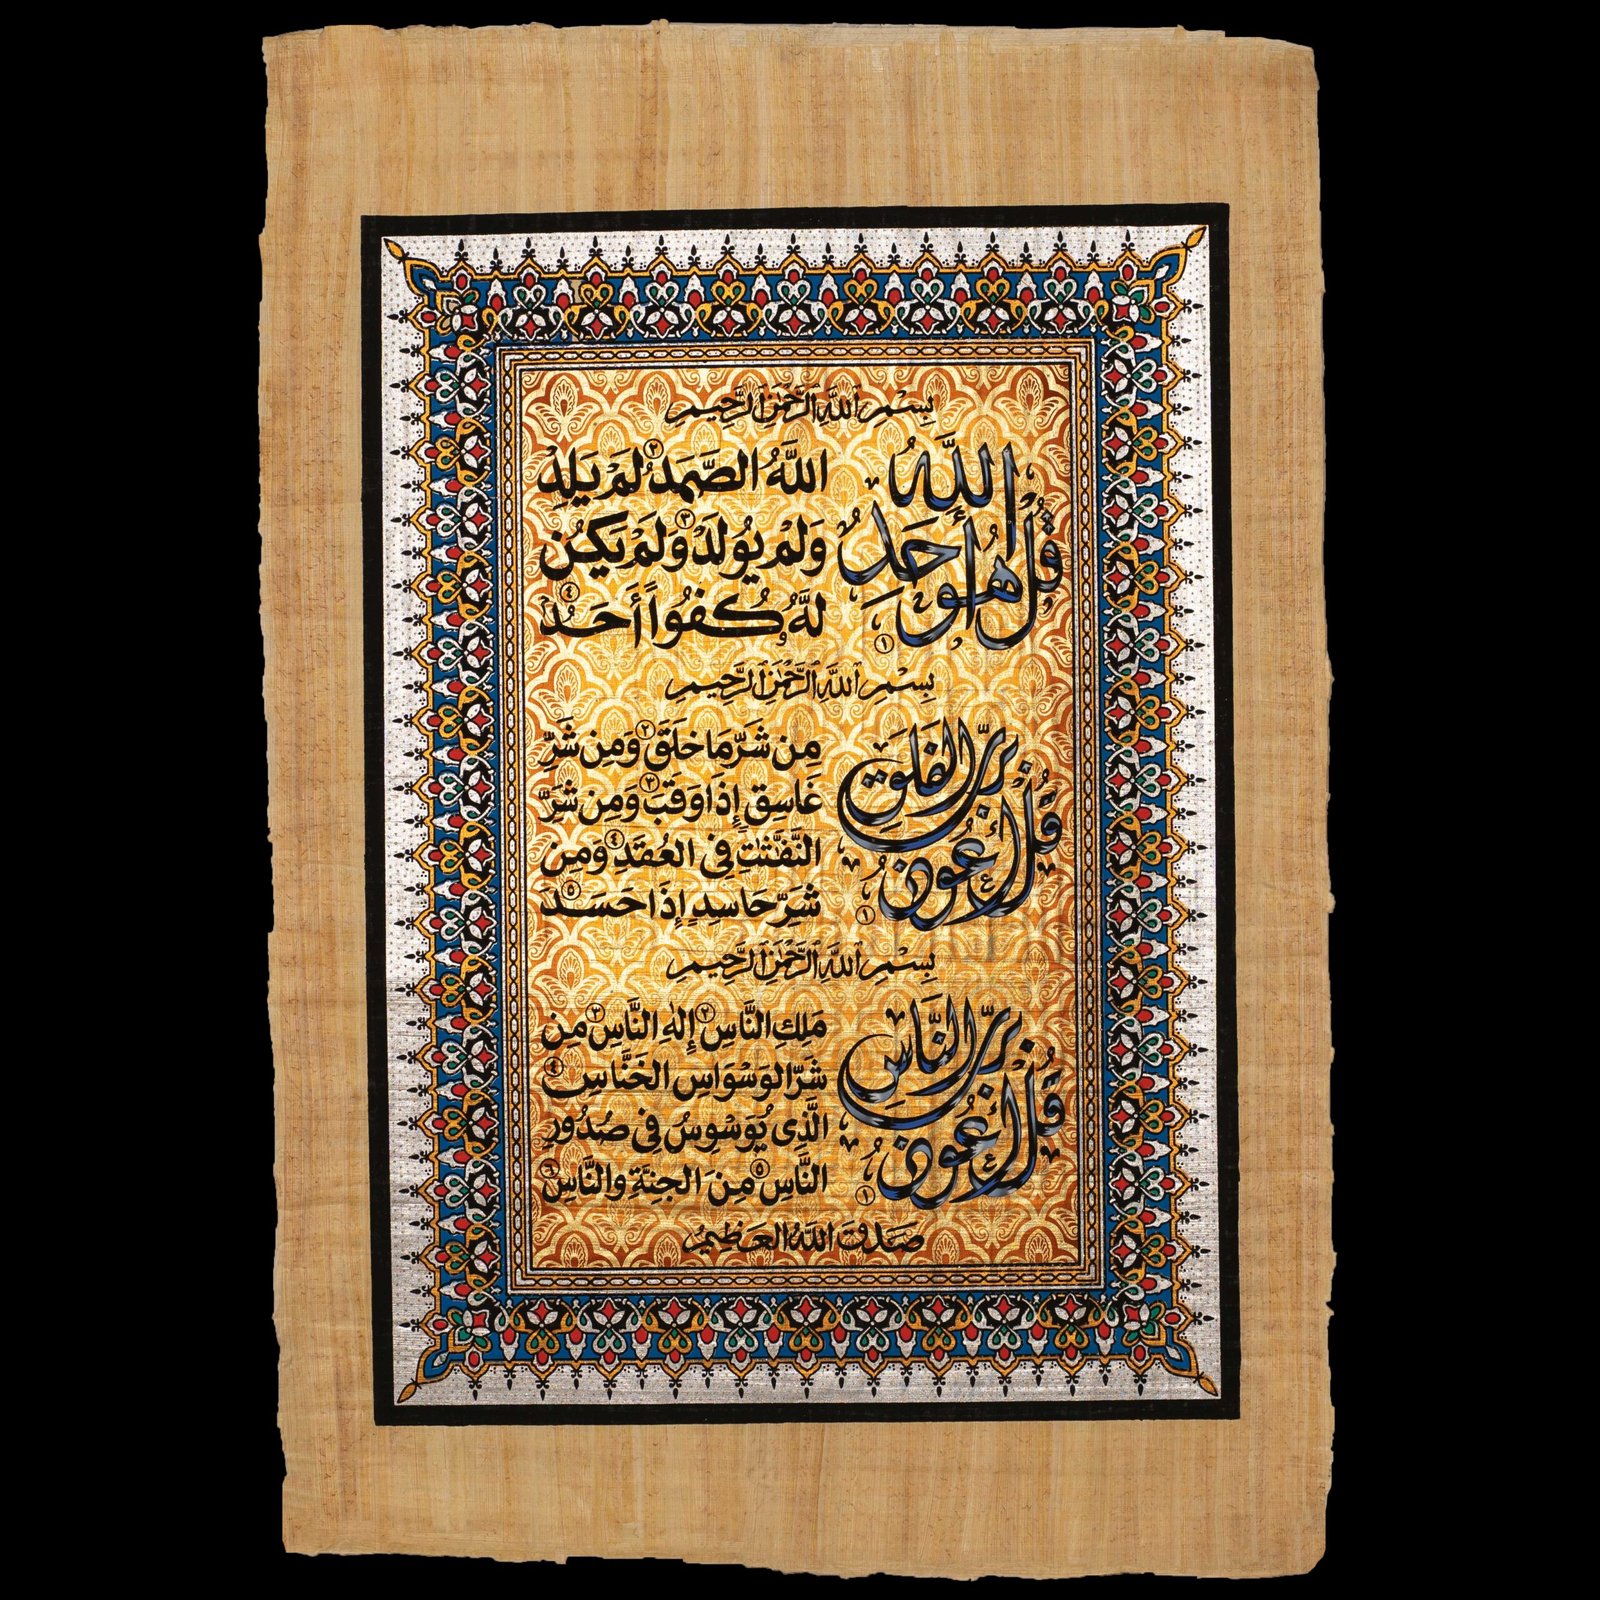 بِسْمِ اللَّهِ الرَّحْمَٰنِ الرَّحِيمِ
قُلْ هُوَ اللَّهُ أَحَدٌ ١
اللَّهُ الصَّمَدُ ٢ لَمْ يَلِدْ
وَلَمْ يُولَدْ ٣ وَلَمْ يَكُن
لَّهُ كُفُواً أَحَدٌ ٤
بِسْمِ اللَّهِ الرَّحْمَٰنِ الرَّحِيمِ
قُلْ أَعُوذُ بِرَبِّ الْفَلَقِ ١
مِن شَرِّ مَا خَلَقَ ٢ وَمِن شَرِّ
غَاسِقٍ إِذَا وَقَبَ ٣ وَمِن شَرِّ
النَّفَّٰثَٰتِ فِي الْعُقَدِ ٤ وَمِن
شَرِّ حَاسِدٍ إِذَا حَسَدَ ٥
بِسْمِ اللَّهِ الرَّحْمَٰنِ الرَّحِيمِ
قُلْ أَعُوذُ بِرَبِّ النَّاسِ ١
مَلِكِ النَّاسِ ٢ إِلَٰهِ النَّاسِ ٣ مِن
شَرِّ الْوَسْوَاسِ الْخَنَّاسِ ٤
الَّذِي يُوَسْوِسُ فِي صُدُورِ
النَّاسِ ٥ مِنَ الْجِنَّةِ وَالنَّاسِ ٦
صَدَقَ اللَّهُ الْعَظِيمُ